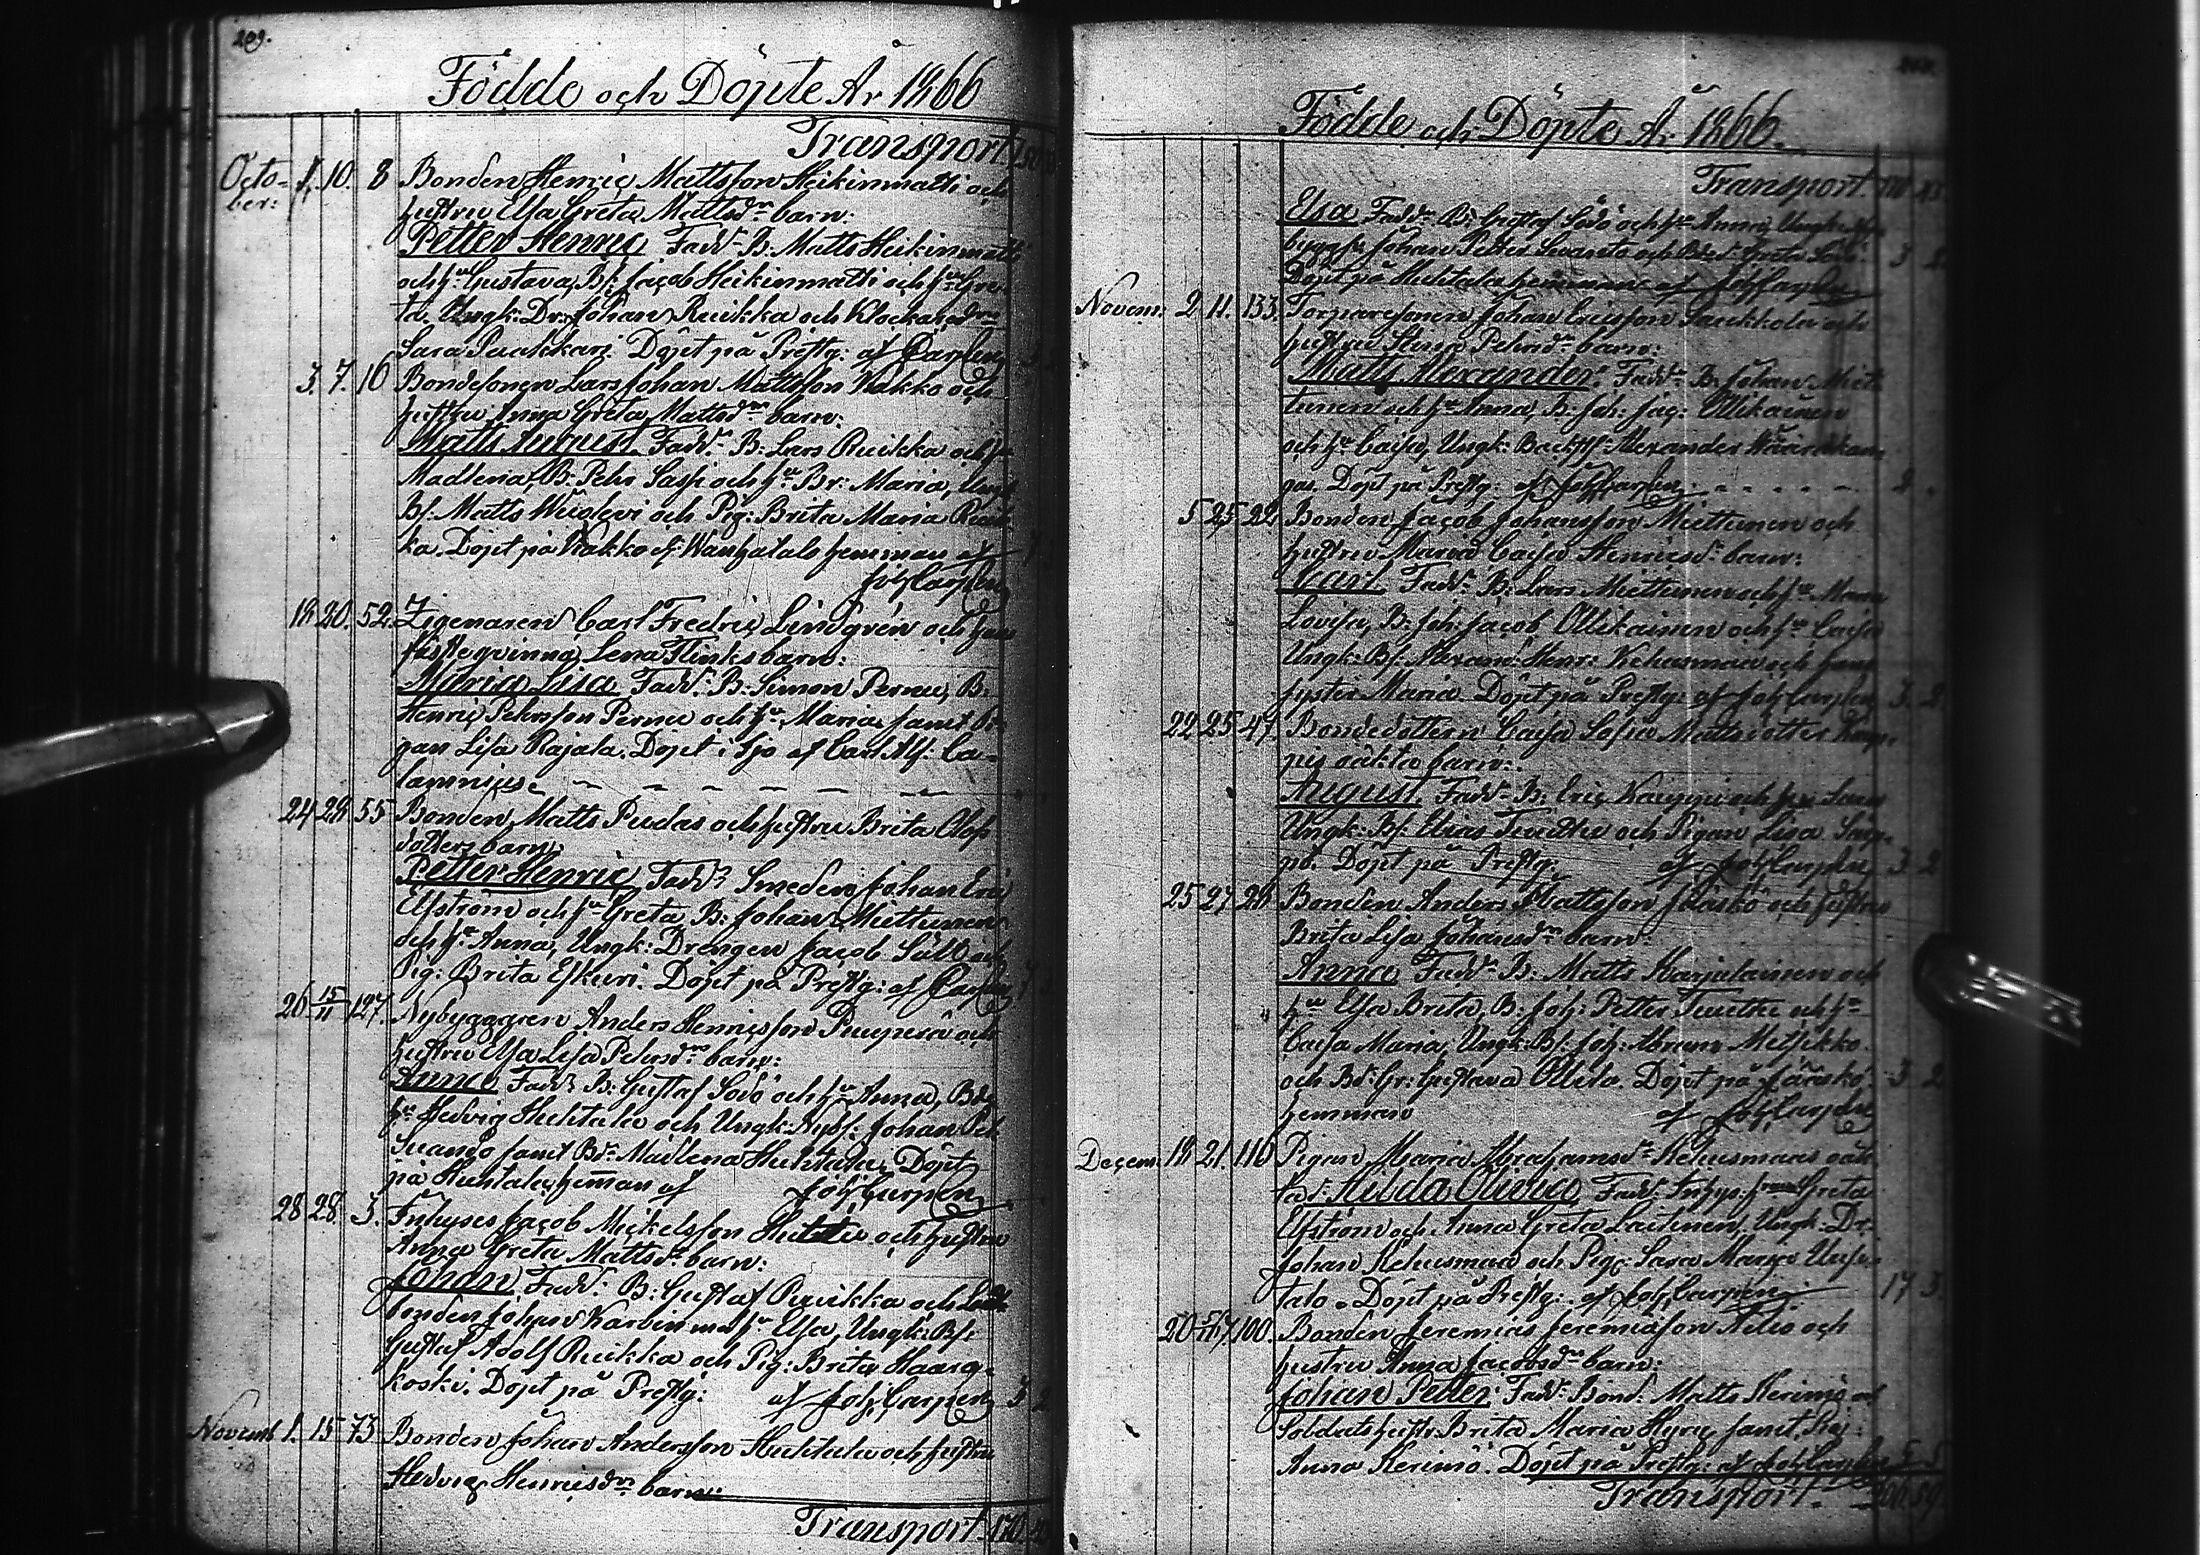 209.
Födde och Döpte År 1866
Transport
Octo- 1. 10. 8 Bonden Henric Mattsson Heikinmatti och
ber: hustru Elsa Greta Mattsdr barn:
Petter Henric Fadd. B: Matts Heikinmatti
och hu Gustava, Bs: Jacob Heikinmatti och hu Gre-
ta. Ungk: Dr: Johan Ruikka och Klockaredr
Sara Puukkari. Döpt på Prestg: af Carpén
3. 7. 10 Bondesonen Lars Johan Mattsson Kakko och
hustru Anna Greta Mattsdr barn:
Matts August Fadd. B: Lars Ruikka och hu
Madlena, B: Pehr Sassi och hu Br: Maria, Ungk
Bs. Matts och Pig: Brita Maria Ruik-
ka. Döpt på Kakko hemman af
Joh Carpén
18 20. 52. Zigenaren Carl Fredric Lindgrén och hans
fästeqvinna Lena Flinks barn:
Maria Lisa Fadd. B: Simon Pernu, B:
Henric Pehrsson Pernu och hu Maria, samt Pi-
gan Lisa Rajala. Döpt i af Carl Alf: Ca-
lamnius
24 28 55 Bonden Matts Pudas och hustru Brita Olofs
dotters barn:
Petter Henric Fadd. Smeden Johan Eric
Elfström och hu Greta, B: Johan Miettunen
och hu Anna, Ungk: Drängen Jacob och
Pig: Brita Eskuri. Döpt på Prestg: af Carpén
26 15/11 127. Nybyggaren Anders Henricsson och
hustru Elsa Lisa Pehrsdr barn:
Anna Fadd. B: Gustaf Södö och hu Anna, Bdr
hu Hedvig Huhtala och Ungk: Nybs: Johan Pet
Suando samt Bdr Madlena Huhtala, Döpt
på Huhtala hemman af Joh Carpén
28 28. 3. Inhyses Jacob Mickelsson och hustru
Anna Greta Mattsdr barn:
Johan Fadd. B: Gustaf Ruikka och
bonden Johan hu Elsa, Ungk: Bs:
Gustaf Adolf Ruikka och Pig: Brita Haara-
koski. Döpt på Prestg: af Joh Carpén 3 2
Novemb 1. 15 73 Bonden Johan Andersson Huhtala och hustru
Hedvig Henricsdr barn:
Transport.
Födde och Döpte År 1866.
Transport.
Elsa Fadd. B: Gustaf Södö och hu Anna, Ungk:
byggs Johan Petter Suando och Greta 3 2
Döpt på Huhtala hemman af Joh Carpén
Novem: 2 11. 133. Torparesonen Johan Ericsson Saukkola och
hustru Stina Pehrsdr barn:
Matts Alexander. Fadd. B: Johan Miet-
tunen och hu Anna, B: Joh: Jac: Ollikainen
och hu Caisa, Ungk: Alexander
Döpt på Prestg: af Joh Carpén
5 25 22 Bonden Jacob Johansson Miettunen och
hustru Maria Caisa Henricsdr barn:
Carl. Fadd. B: Lars Miettunen och hu Maria
Lovisa, B: Joh: Jacob Ollikainen och hu Caisa
Ungk: Bs: Alexand: Henr: Kehusmaa och hans
syster Maria. Döpt på Prestg: af Joh Carpén 3. 2
22 25 47. Bondedottern Caisa Sofia Mattsdotter
oäkta barn:
August. Fadd. B: Eric och hu Sara
Ungk: Bs: Elias och Pigan Lisa
Döpt på Prestg: af Joh Carpén 3 2
25 27 28 Bonden Anders Mattsson Jääskö och hustru
Brita Lisa Johansdr barn:
Anna Fadd. B: Matts Karjalainen och
hu Elsa Brita, B: Joh: Petter och hu
Caisa Maria, Ungk: Bs: Joh: Abram Metsikkö
och Bd: Gr: Gustava Ollila. Döpt på Jääskö 3 2
hemman af Joh Carpén
Decem: 18 21. 116 Pigan Maria Abrahamsdr Kehusmaas oäk-
ta: Hilda Olivia Fadd. Inhys: hustru Greta
Elfström och Anna Greta Laitinen, Ungk: Dr.
Johan Kehusmaa och Pig: Sara Maria
talo. Döpt på Prestg: af Joh Carpén 17 3
20 100. Bonden Jeremias Jeremiasson Kilio och
hustru Anna Jacobsdr barn:
Johan Petter. Fadd. Bond: Matts Kerimö och
Soldatshustr. Brita Maria samt Pig:
Anna Kerimö. Döpt på Prestg: af Joh Carpén 5 5
Transport.